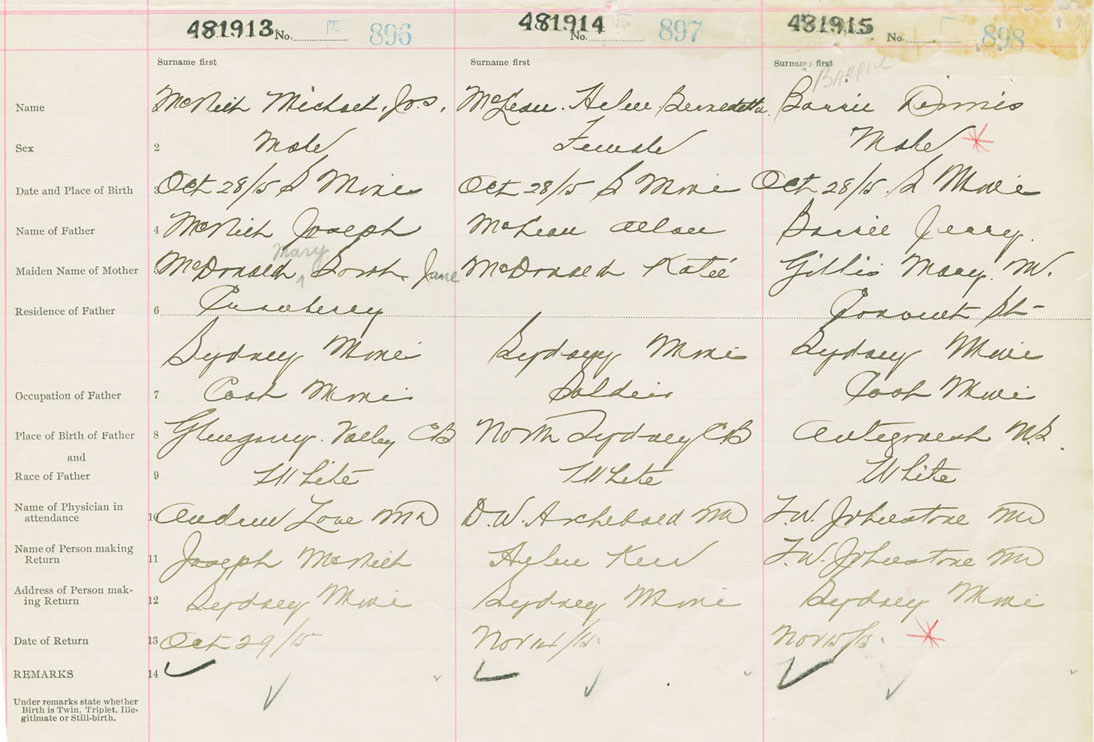 481913 481914 481915
No. 896 No. 897 No. 898
Surname first Surname first Surname first
BARRIE
Name McNeil Michael. Jos. McLean. Helen Bernedetta. Barrie Dennis
Sex 2 Male Female Male *
Date and Place of Birth 3 Oct 28/15 S Mines Oct 28/15 S Mines Oct 28/15. S Mines
Name of Father 4 McNeil Joseph McLean Allan Barrie Jerry.
Mary
Maiden Name of Mother McDonald Sarah Jane McDonald Katie Gillis Mary. M.
Residence of Father 6 Cranberry Convent St
Sydney Mines Sydney Mines Sydney Mines
Occupation of Father 7 Coal Mines Soldier Coal Mines
Place of Birth of Father 8 Glengarry Valley CB North Sydney CB Antigonish N.S.
and
Race of Father 9 White White White
Name of Physician in
attendance 10 Andrew Love MD D.W. Archibald MD F.W. Johnstone MD
Name of Person making
Return 11 Joseph McNeil Helen Kerr F.W. Johnstone MD
Address of Person mak-
ing Return 12 Sydney Mines Sydney Mines Sydney Mines
Date of Return 13 Oct 29/15 Nov 14/15. Nov 15/15. *
REMARKS 14
Under remarks state whether
Birth is Twin, Triplet, Ille-
gitimate or Still-birth.